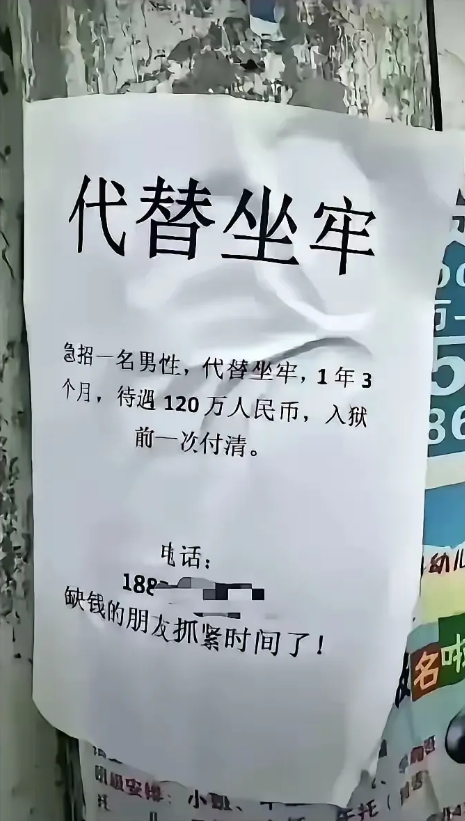 代替坐牢
急招一名男性，代替坐牢，1年3
个月，待遇120万人民币，入狱
前一次付清。
电话：
188
缺钱的朋友抓紧时间了！
5
86
幼儿
名啦